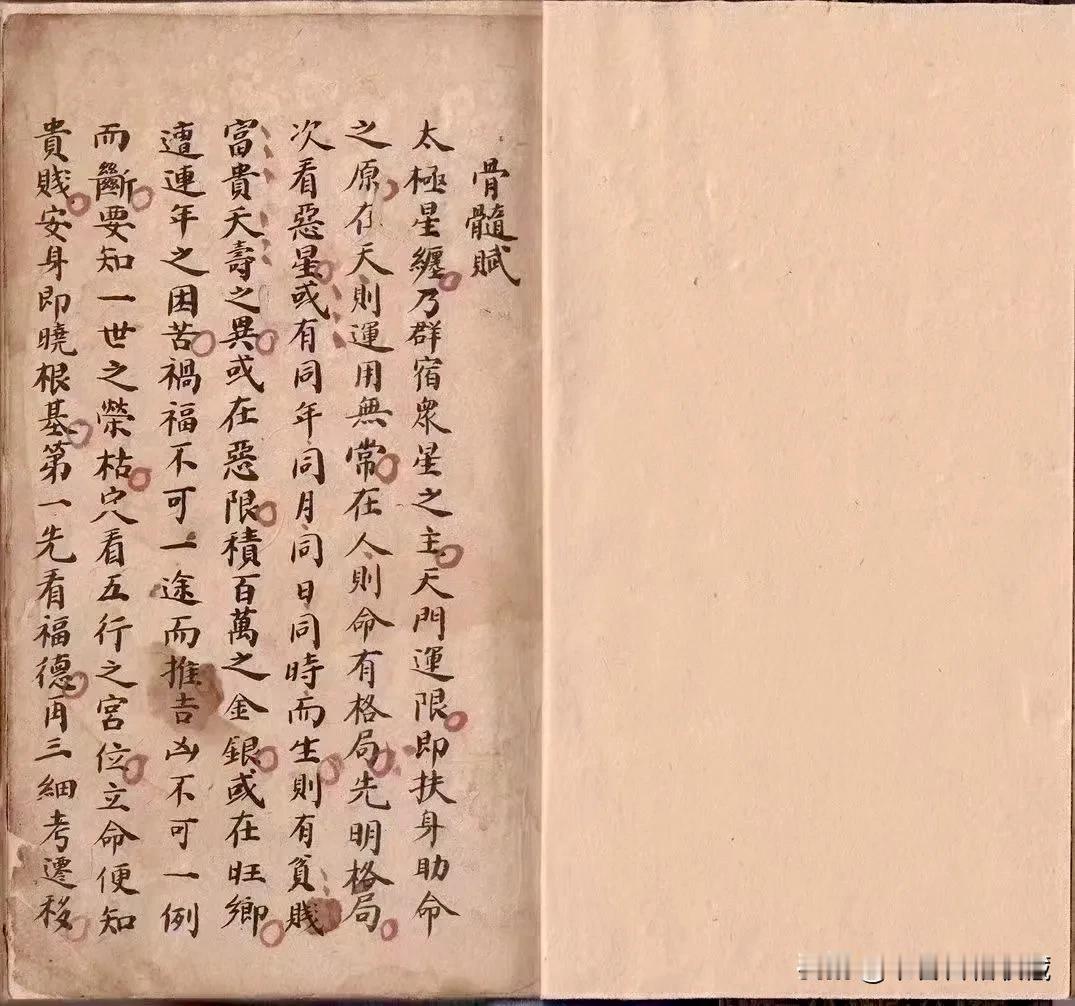 骨髓賦
太極星纏乃群宿眾星之主天門運限即扶身助命
之原在天則運用無常在人則命有格局先明格局
次看惡星或有同年同月同日同時而生則有貧賤
富貴夭壽之異或在惡限積百萬之金銀或在旺鄉
遭連年之困苦禍福不可一途而推吉凶不可一例
而斷要知一世之榮枯穴看五行之宮位立命便知
貴賤安身即曉根基第一先看福德再三細考遷移